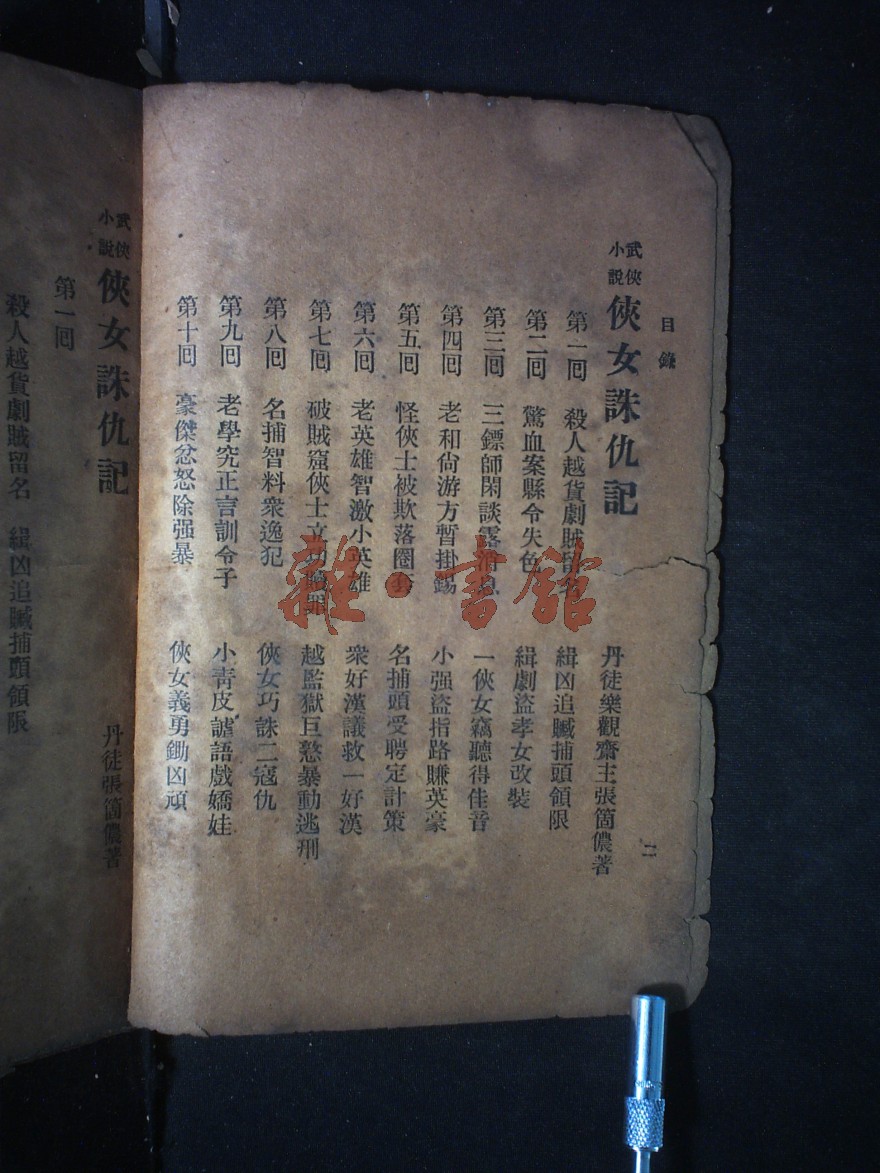 目錄
二
武俠小說 俠女誅仇記
丹徒樂觀齋主張箇儂著
第一回 殺人越貨劇賊留名 緝凶追贓捕頭領限
第二回 驚血案縣令失色 緝劇盜孝女改裝
第三回 三鏢師閑談露消息 一俠女竊聽得佳音
第四回 老和尙游方暫掛錫 小强盜指路賺英豪
第五回 怪俠士被欺落圈套 名捕頭受聘定計策
第六回 老英雄智激小英雄 衆好漢議救一好漢
第七回 破賊窟俠士立功贖罪 越監獄巨憝暴動逃刑
第八回 名捕智料衆逸犯 俠女巧誅二寇仇
第九回 老學究正言訓令子 小靑皮謔語戲嬌娃
第十回 豪傑忿怒除强暴 俠女義勇鋤凶頑
武俠小說 俠女誅仇記
丹徒張箇儂著
第一回
殺人越貨劇賊留名 緝凶追贓捕頭領限
雜·書館